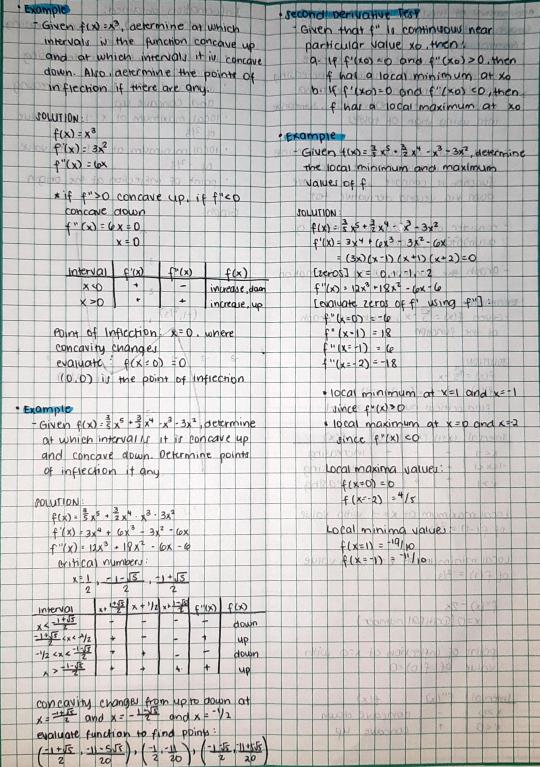 • Example
- Given f(x) = x³, determine at which
intervals is the function concave up
and at which intervals it is concave
down. Also, determine the points of
inflection if there are any.
SOLUTION:
f(x) = x³
f'(x) = 3x²
f"(x) = 6x
* if f">0 concave up, if f"<0
concave down
f"(x) = 6x = 0
x = 0
Interval f'(x) f"(x) f(x)
x<0 + - increase, down
x>0 + + increase, up
Point of Inflection: x=0, where
concavity changes
evaluate: f(x=0) = 0
(0,0) is the point of inflection
• Example
- Given f(x) = 3/5 x⁵ + 3/2 x⁴ - x³ - 3x², determine
at which intervals it is concave up
and concave down. Determine points
of inflection if any
SOLUTION:
f(x) = 3/5 x⁵ + 3/2 x⁴ - x³ - 3x²
f'(x) = 3x⁴ + 6x³ - 3x² - 6x
f"(x) = 12x³ + 18x² - 6x - 6
critical numbers:
Interval f"(x) f(x)
- - - - down
+ - - + up
+ + - - down
+ + + + up
concavity changes from up to down at
and x = -1/2
evaluate function to find points:
• Second Derivative Test
- Given that f" is continuous near
particular value x₀, then:
a. If f'(x₀) = 0 and f"(x₀) > 0, then
f has a local minimum at x₀
b. If f'(x₀) = 0 and f"(x₀) < 0, then
f has a local maximum at x₀
• Example
- Given f(x) = 3/5 x⁵ + 3/2 x⁴ - x³ - 3x², determine
the local minimum and maximum
values of f
SOLUTION:
f(x) = 3/5 x⁵ + 3/2 x⁴ - x³ - 3x²
f'(x) = 3x⁴ + 6x³ - 3x² - 6x
= (3x)(x-1)(x+1)(x+2) = 0
[zeros] x = 0, 1, -1, -2
f"(x) = 12x³ + 18x² - 6x - 6
[evaluate zeros of f' using f"]:
f"(x=0) = -6
f"(x=1) = 18
f"(x=-1) = 6
f"(x=-2) = -18
• local minimum at x=1 and x=-1
since f"(x)>0
• local maximum at x=0 and x=-2
since f"(x)<0
Local maxima values:
f(x=0) = 0
f(x=-2) = 4/5
Local minima values:
f(x=1) = -19/10
f(x=-1) = -11/10